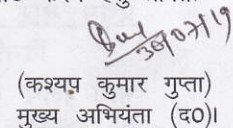 30/07/19
(कश्यप कुमार गुप्ता)
मुख्य अभियंता (द०)।